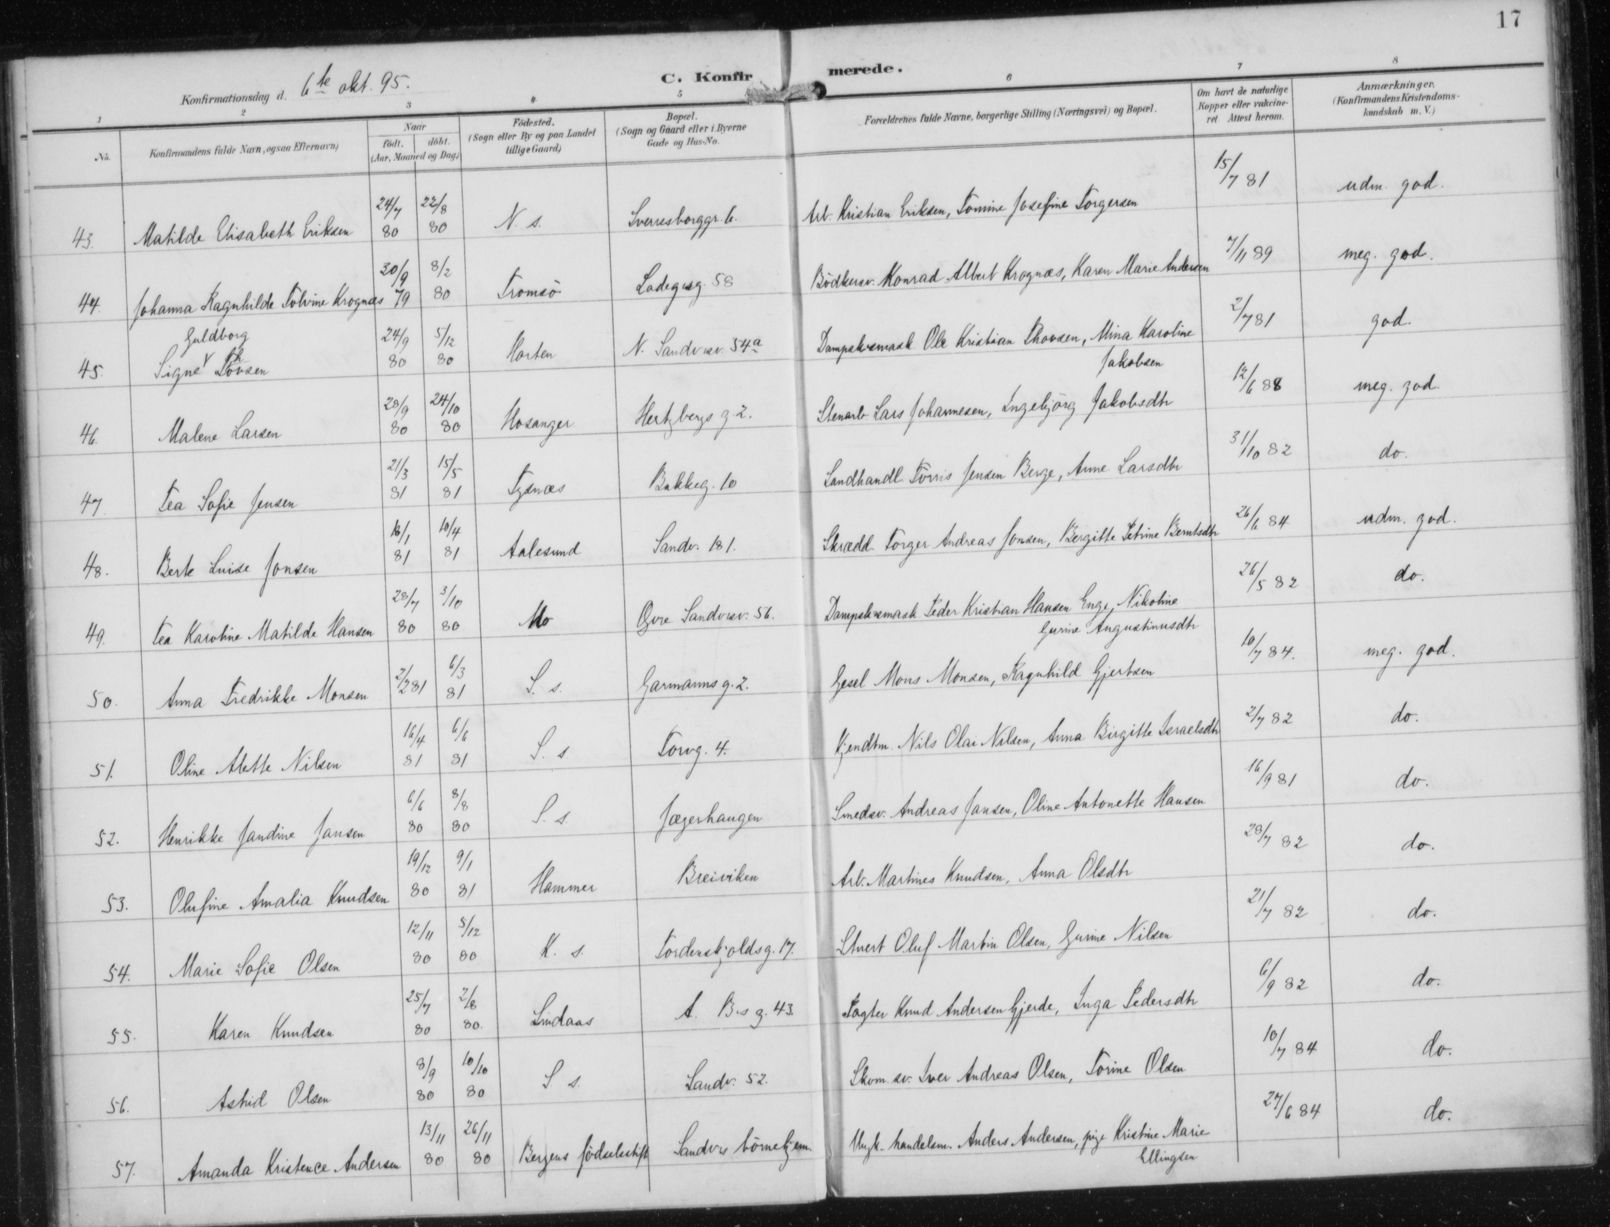 17
C. Konfirmerede.
Konfirmationsdag d. 6te okt. 95.
1 2 3 4 5 6 7 8
No. Konfirmandens fulde Navn, ogsaa Efternavn) Naar födt. döbt. (Aar, Maaned og Dag) Födested. (Sogn eller By og paa Landet tillige Gaard) Bopæl. (Sogn og Gaard eller i Byerne Gade og Hus-No. Forældrenes fulde Navne, borgerlige Stilling (Næringsvei) og Bopæl. Om havt de naturlige Kopper eller vakcineret Attest herom. Anmærkninger. (Konfirmandens Kristendomskundskab m. V.)
43. Matilde Elisabeth Eriksen 24/7 80 22/8 80 N. s. Sverresborggr. 6. Arb. Kristian Eriksen, Tomine Josefine Torgersen 15/7 81 udm. god.
44. Johanna Ragnhilde Tolvine Krognæs 30/9 79 8/2 80 Tromsö Ladegsg. 58 Bödkersv. Konrad Albert Krognæs, Karen Marie Andersen 7/11 89 meg. god.
Guldborg
45. Signe Tovsen 24/9 80 5/12 80 Horten N. Sandvsv. 54a Dampsk.mask Ole Kristian Thovsen, Mina Karoline 2/7 81 god.
Jakobsen
46. Malene Larsen 28/9 80 24/10 80 Hosanger Hertzbergs g. 2. Stenarb. Lars Johannesen, Ingebjörg Jakobsdtr 12/6 88 meg. god.
47. Tea Sofie Jensen 21/3 81 15/5 81 Tysnæs Bakkeg. 10 Landhandl. Torris Jensen Berge, Anne Larsdtr 31/10 82 do.
48. Berte Luise Jonsen 16/1 81 10/4 81 Aalesund Sandv. 181. Skrædd. Torger Andreas Jonsen, Bergitte Petrine Berntsdtr 26/6 84 udm. god.
49. Tea Karoline Matilde Hansen 28/7 80 3/10 80 Mo Øvre Sandvsv. 56. Dampsk.mask Peder Kristian Hansen Enge, Nikoline 26/5 82 do.
Gurine Augustinusdtr
50. Anna Fredrikke Monsen 2/2 81 6/3 81 S. s. Garmanns g. 2. Gesel Mons Monsen, Ragnhild Gjertsen 10/7 84. meg. god.
51. Oline Alette Nilsen 16/4 81 6/6 81 S. s Torvg. 4. Kjendtm. Nils Olai Nilsen, Anna Birgitte Israelsdtr 2/7 82 do.
52. Henrikke Jandine Jansen 6/6 80 8/8 80 S. s Jægerhaugen Smedsv. Andreas Jansen, Oline Antonette Hansen 16/9 81 do.
53. Olufine Amalia Knudsen 19/12 80 9/1 81 Hammer Breiviken Arb. Martines Knudsen, Anna Olsdtr 28/7 82 do.
54. Marie Sofie Olsen 12/11 80 5/12 80 K. s. Tordenskjoldsg. 17. Stuert Oluf Martin Olsen, Gurine Nilsen 21/7 82 do.
55. Karen Knudsen 25/7 80 2/8 80. Lindaas A. B.s g. 43. Fogter Knud Andersen Gjerde, Inga Pedersdtr 6/9 82 do.
56. Astrid Olsen 8/9 80 10/10 80 S s. Sandv. 52. Skom.sv. Iver Andreas Olsen, Torine Olsen 10/7 84 do.
57. Amanda Kristence Andersen 13/11 80 26/11 80 Bergens födselsstift. Sandvs börnehjem. Ungk. handelsm. Anders Andersen, pige Kristine Marie 27/6 84 do.
Ellingsen